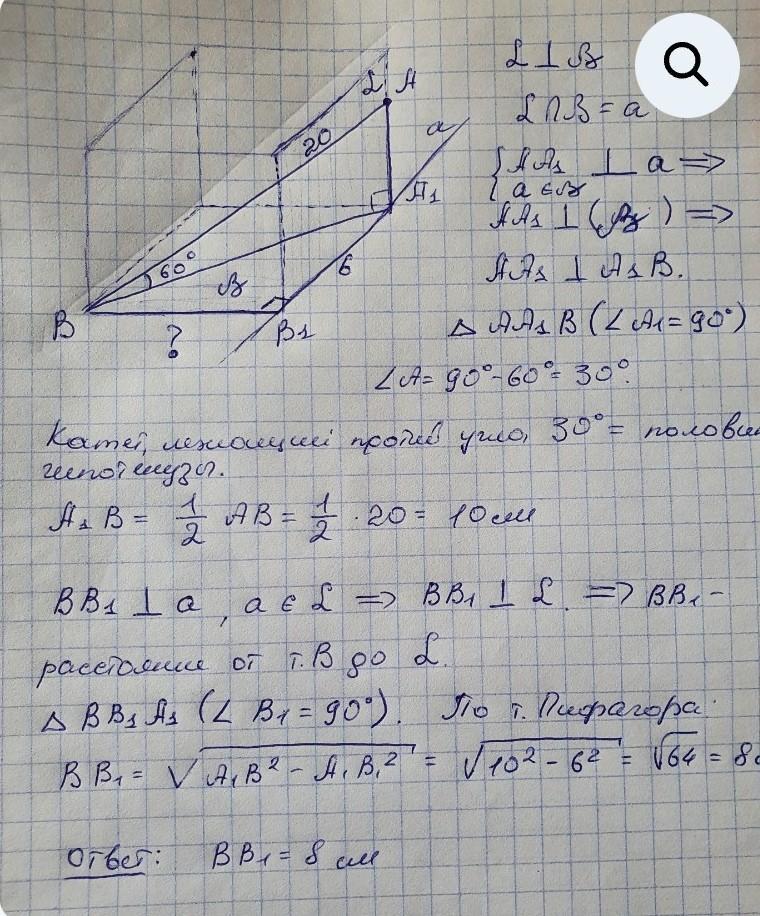 α ⊥ β
α ∩ β = a
{ AA₁ ⊥ a =>
a ∈ β
AA₁ ⊥ (β) =>
AA₁ ⊥ A₁B.
△ AA₁B (∠A₁ = 90°)
∠A = 90° - 60° = 30°.
α A
20
a
A₁
60°
β
6
B
?
B₁
Катет, лежащий против угла 30° =
гипотенузы.
A₁B = 1/2 AB = 1/2 · 20 = 10 см
BB₁ ⊥ a, a ∈ α => BB₁ ⊥ α. => BB₁ -
расстояние от т. B до α.
△ BB₁A₁ (∠B₁ = 90°). По т. Пифагора:
BB₁ = √A₁B² - A₁B₁² = √10² - 6² = √64 = 8
Ответ: BB₁ = 8 см